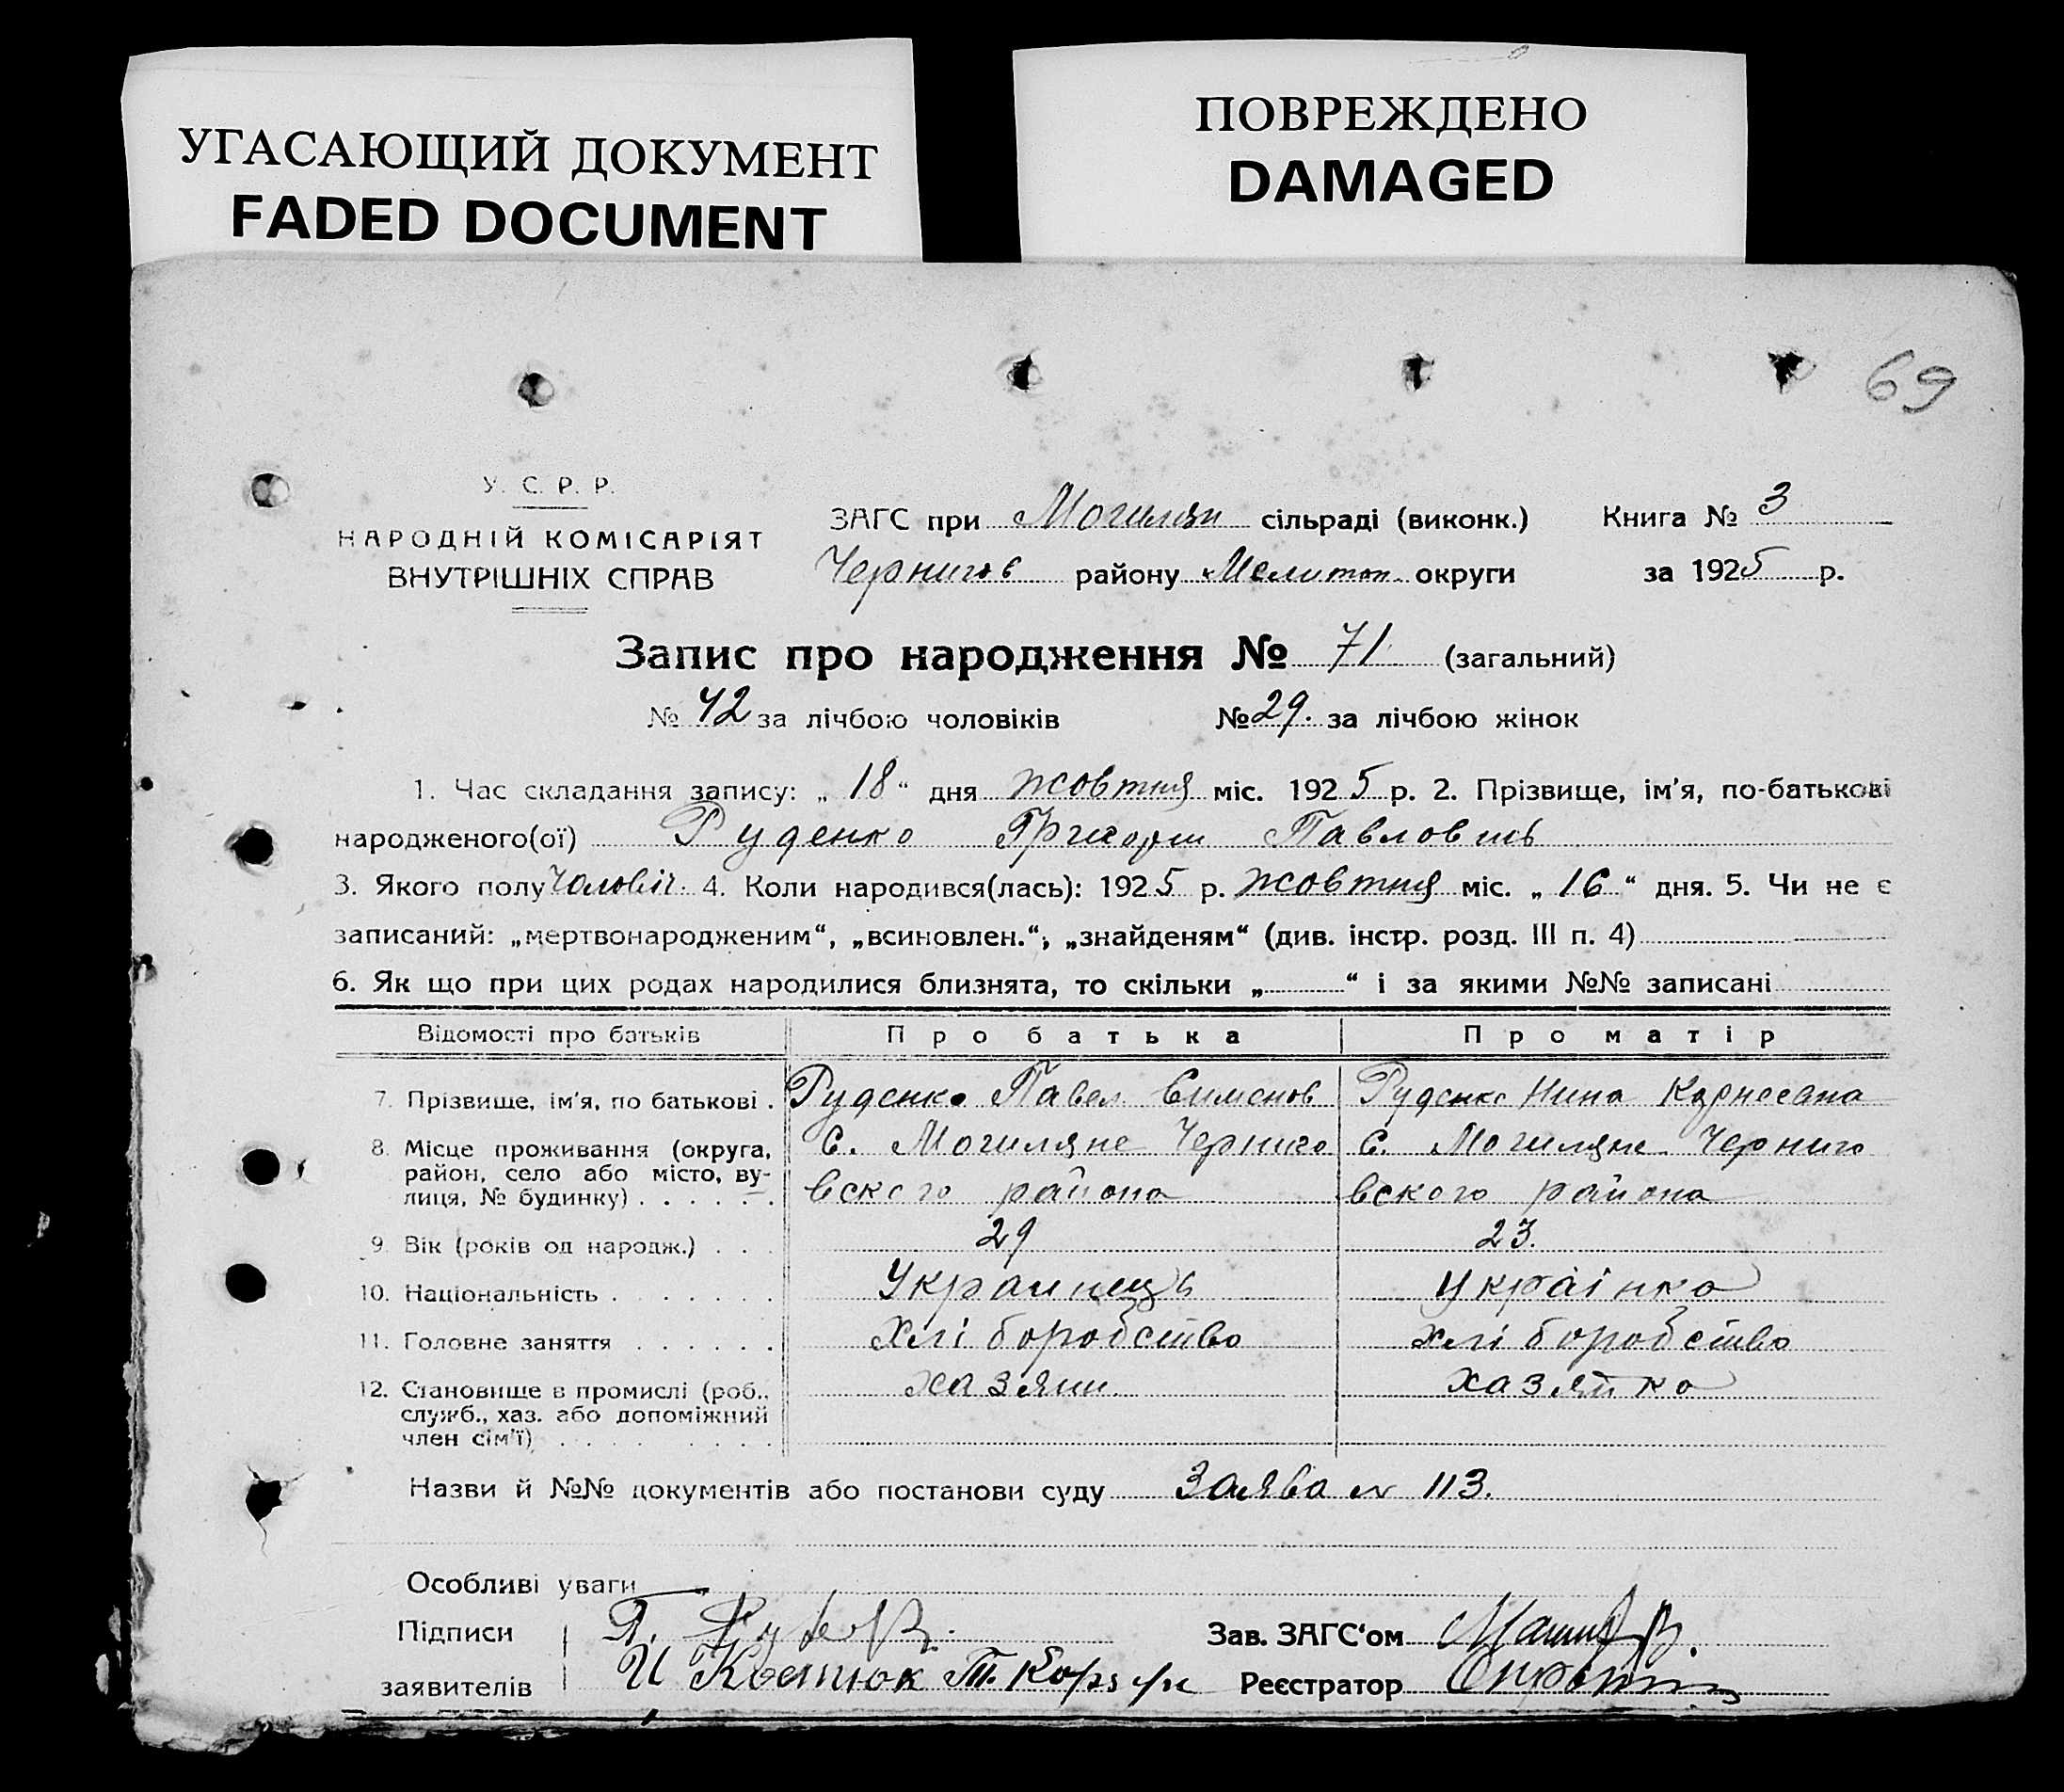 УГАСАЮЩИЙ ДОКУМЕНТ
FADED DOCUMENT
ПОВРЕЖДЕНО
DAMAGED
69
У. С. Р. Р.
НАРОДНІЙ КОМІСАРІЯТ
ВНУТРІШНІХ СПРАВ
ЗАГС при Могилян сільраді (виконк.) Книга № 3
Чернигов району Мелитоп. округи за 1925 р.
Запис про народження № 71 (загальний)
№ 42 за лічбою чоловіків № 29. за лічбою жінок
1. Час складання запису: „ 18 “ дня жовтня міс. 1925 р. 2. Прізвище, ім'я, по-батькові
народженого(ої) Руденко Григорій Павлович
3. Якого полу чоловіч. 4. Коли народився(лась): 1925 р. жовтня міс. „ 16 “ дня. 5. Чи не є
записаний: „мертвонародженим“, „всиновлен.“, „знайденям“ (див. інстр. розд. III п. 4)
6. Як що при цих родах народилися близнята, то скільки „ “ і за якими №№ записані
Відомості про батьків Про батька Про матір
7. Прізвище, ім'я, по батькові . Руденко Павел Сименов Руденко Нина Корнеевна
8. Місце проживання (округа, район, село або місто, вулиця, № будинку) . . . . . . С. Могиляне Черниго С. Могиляне Черниго
вского района вского района
9. Вік (років од народж.) . . . 29 23.
10. Національність . . . . . . . Украинець Українка
11. Головне заняття . . . . . . Хліборобство хліборобство
12. Становище в промислі (роб., служб., хаз. або допоміжний член сім'ї) . . . . . . . . . хазяин хазяйка
Назви й №№ документів або постанови суду Заява № 113.
Особливі уваги
Підписи Зав. ЗАГС'ом
заявителів И Костюк Реєстратор